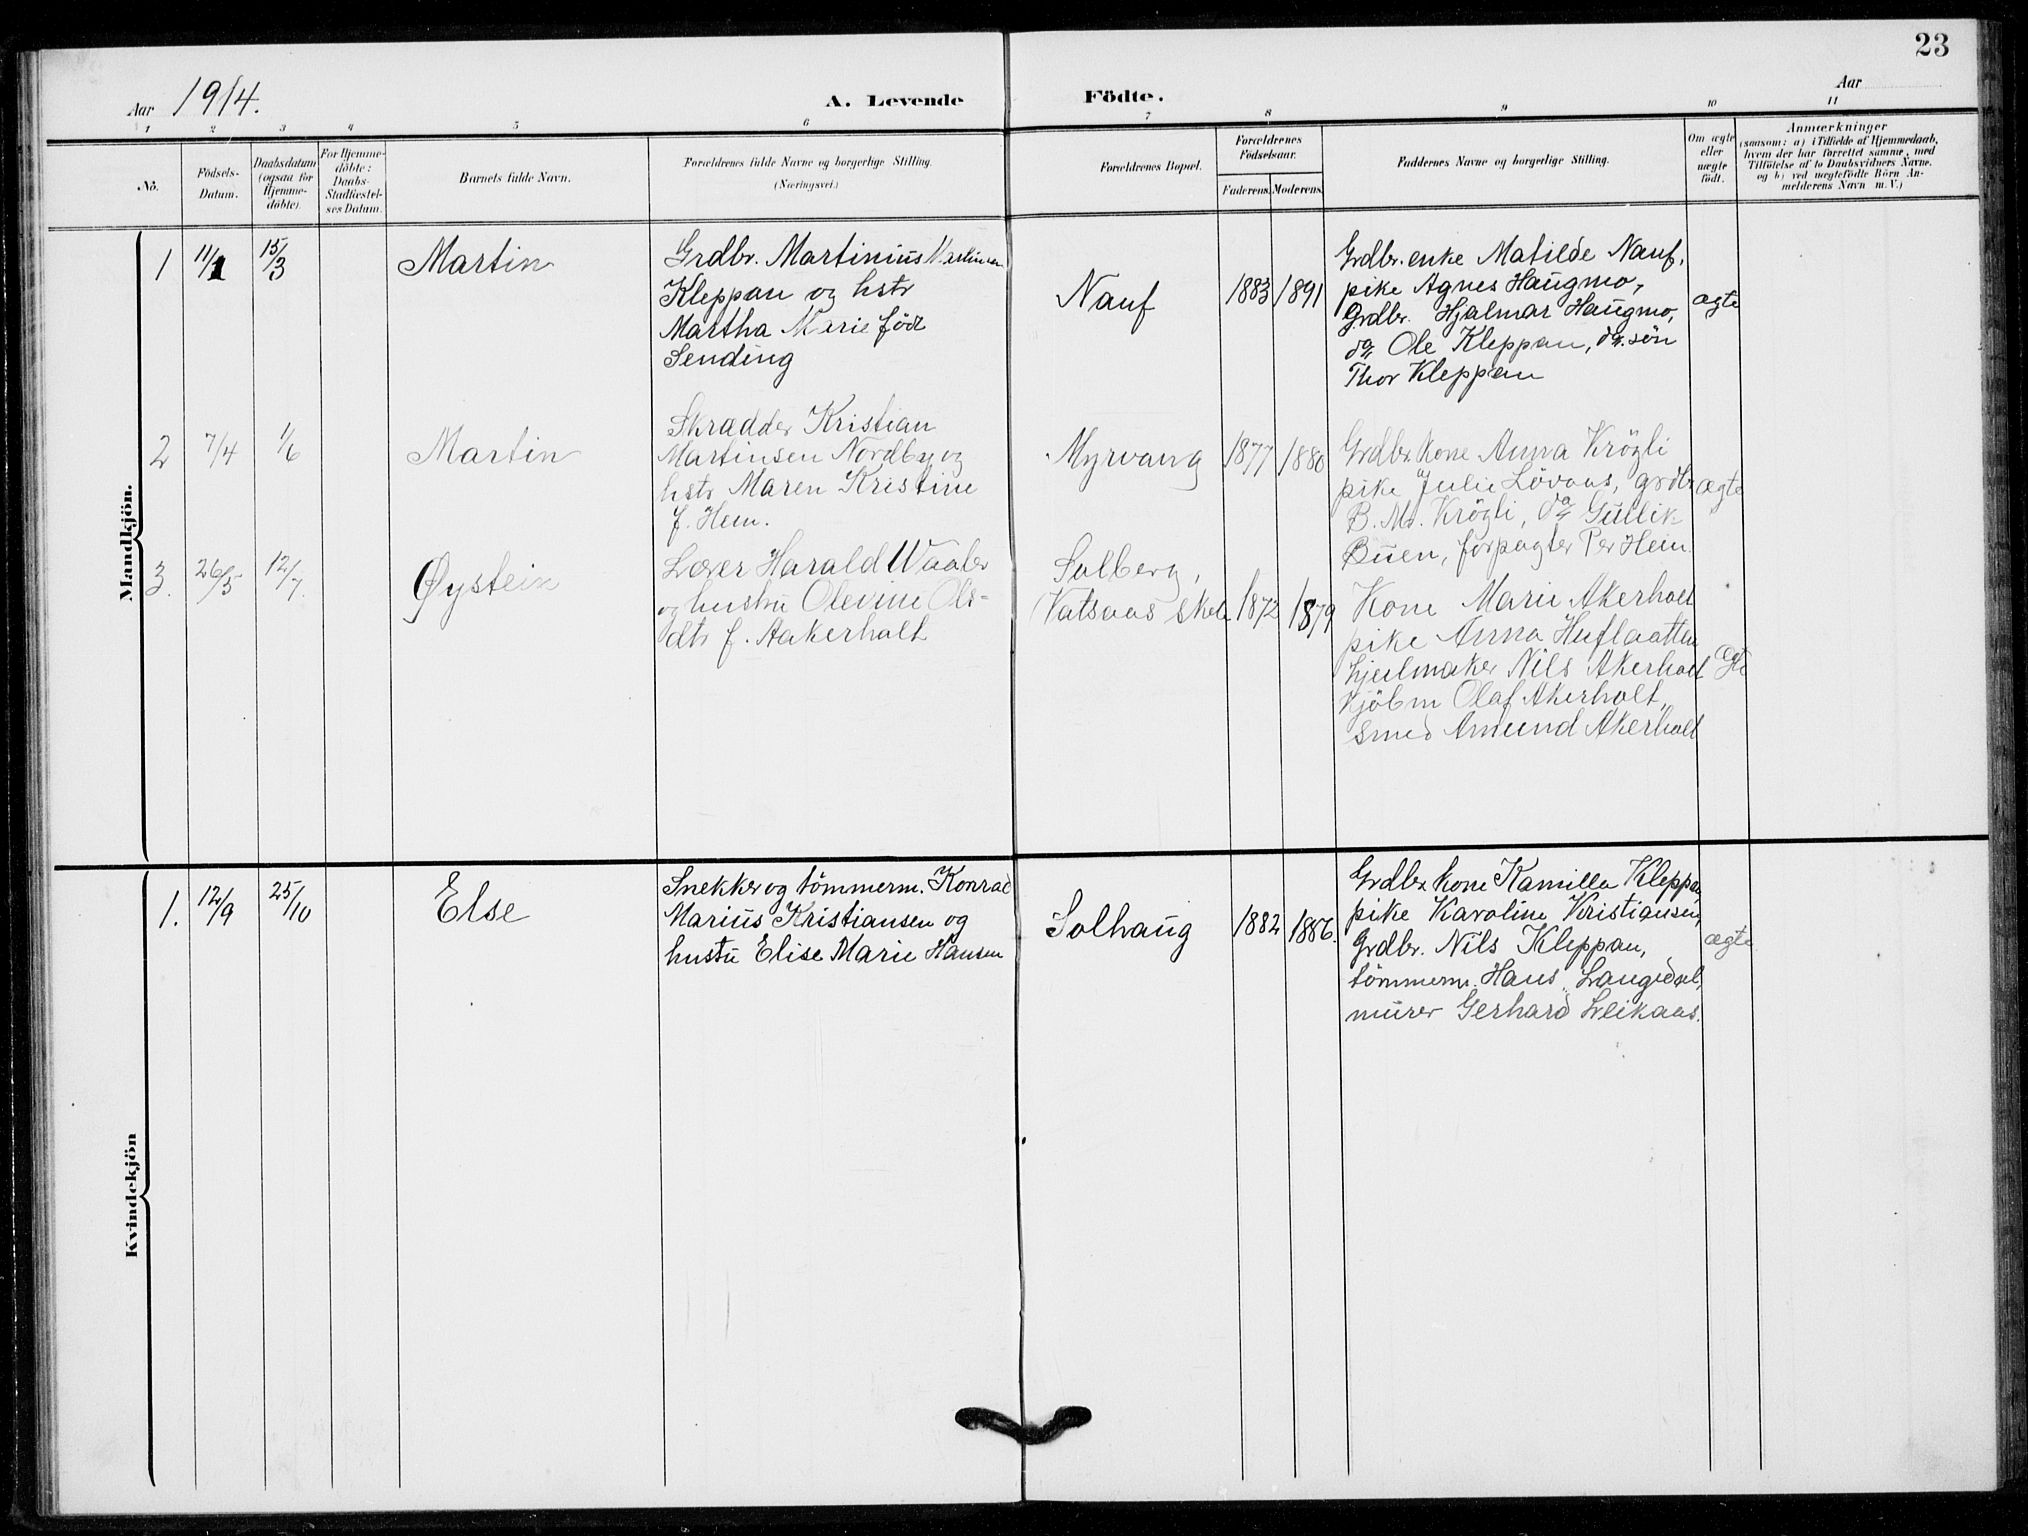 23
Aar 1914. A. Levende Födte. Aar
1 2 3 4 5 6 7 8 9 10 11
No.
Födsels-
Datum.
Daabsdatum
(ogsaa for
Hjemme-
döbte).
For Hjemme-
döbte:
Daabs-
Stadfæstel-
ses Datum.
Barnets fulde Navn.
Forældrenes fulde Navne og borgerlige Stilling.
(Næringsvei.)
Forældrenes Bopæl.
Forældrenes
Födselsaar.
Faderens. Moderens.
Faddernes Navne og borgerlige Stilling.
Om ægte
eller
uægte
født.
Anmærkninger
(saasom: a) i Tilfælde af Hjemmedaab,
hvem der har forrettet samme, med
Tilföielse af to Daabsvidners Navne.
og b) ved uægtefödte Börn An-
melderens Navn m. V.)
Mandkjön.
1 11/1 15/3 Martin
Grdbr. Martinius
Kleppan og hstr
Martha Marie född
Sending
Nauf 1883 1891
Grdbr. enke Matilde Nauf,
pike Agnes Haugmo,
Grdbr. Hjalmar Haugmo,
do Ole Kleppan, do. sön
Thor Kleppan
ægte
2 7/4 1/6 Martin
Skrædder Kristian
Martinsen Nordby og
hstr Maren Kristine
f. Hem.
Myrvang 1877 1880
Grdbr. kone Anna Krögli
pike Julie Lövaas, grdbr
B. M. Krögli, do Gullik
Buen, forpagter Per Hem.
ægte
3. 26/5 12/7. Øystein
Lærer Harald Waaler
og hustru Olevine Ols-
dtr f. Aakerholt
Solberg,
(Vatsaas skole 1872 1879
Kone Marie Akerholt
pike Anna Huflaatten
hjulmaker Nils Akerholt
kjöbm Olaf Akerholt,
smed Amund Akerholt
ægte
Kvindekjön
1. 12/9 25/10 Else
Snekker og tömmerm. Konrad
Marius Kristiansen og
hustu Elise Marie Hansen
Solhaug 1882 1886.
Grdbr. kone Kamilla Kleppan,
pike Karoline Kristiansen,
Grdbr. Nils Kleppan,
tömmerm. Hans Langedal,
murer Gerhard Leikaas.
ægte